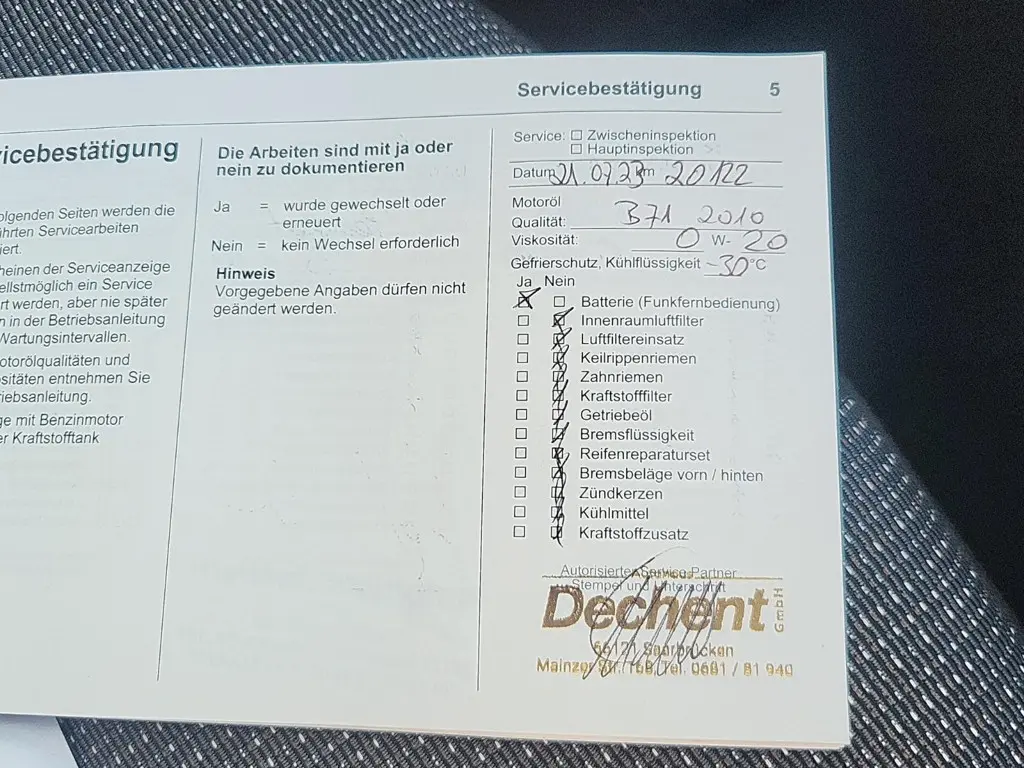 Servicebestätigung 5
icebestätigung
olgenden Seiten werden die
ührten Servicearbeiten
iert.
heinen der Serviceanzeige
ellstmöglich ein Service
rt werden, aber nie später
n in der Betriebsanleitung
Wartungsintervallen.
otorölqualitäten und
sitäten entnehmen Sie
riebsanleitung.
ge mit Benzinmotor
er Kraftstofftank
Die Arbeiten sind mit ja oder
nein zu dokumentieren
Ja = wurde gewechselt oder
erneuert
Nein = kein Wechsel erforderlich
Hinweis
Vorgegebene Angaben dürfen nicht
geändert werden.
Service: ☐ Zwischeninspektion
☐ Hauptinspektion
Datum 21.07.23 km 20122
Motoröl
Qualität: B71 2010
Viskosität: 0 W- 20
Gefrierschutz, Kühlflüssigkeit -30 °C
Ja Nein
☒ ☐ Batterie (Funkfernbedienung)
☐ ☒ Innenraumluftfilter
☐ ☒ Luftfiltereinsatz
☐ ☒ Keilrippenriemen
☐ ☒ Zahnriemen
☐ ☒ Kraftstofffilter
☐ ☒ Getriebeöl
☐ ☒ Bremsflüssigkeit
☐ ☒ Reifenreparaturset
☐ ☒ Bremsbeläge vorn / hinten
☐ ☒ Zündkerzen
☐ ☒ Kühlmittel
☐ ☒ Kraftstoffzusatz
Autorisierter Service Partner
Stempel und Unterschrift
Dechent GmbH
66121 Saarbrücken
Mainzer Str. 168, Tel. 0681 / 81 940